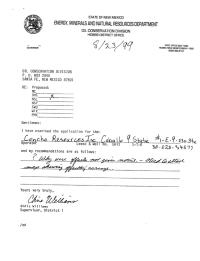 STATE OF NEW MEXICO
ENERGY, MINERALS AND NATURAL RESOURCES DEPARTMENT
OIL CONSERVATION DIVISION
HOBBS DISTRICT OFFICE
8/23/99
OIL CONSERVATION DIVISION
P. O. BOX 2088
SANTA FE, NEW MEXICO 87501
RE: Proposed:
MC
DHC
NSL X
NSP
SWD
WFX
PMX
Gentlemen:
I have examined the application for the:
Concho Resources Inc
Operator Lease & Well No. Unit S-T-R
and my recommendations are as follows:
Why were offsets not given notice - Need to attach
map showing offsetting acreage.
Yours very truly,
Chris Williams
Chris Williams
Supervisor, District 1
/ed